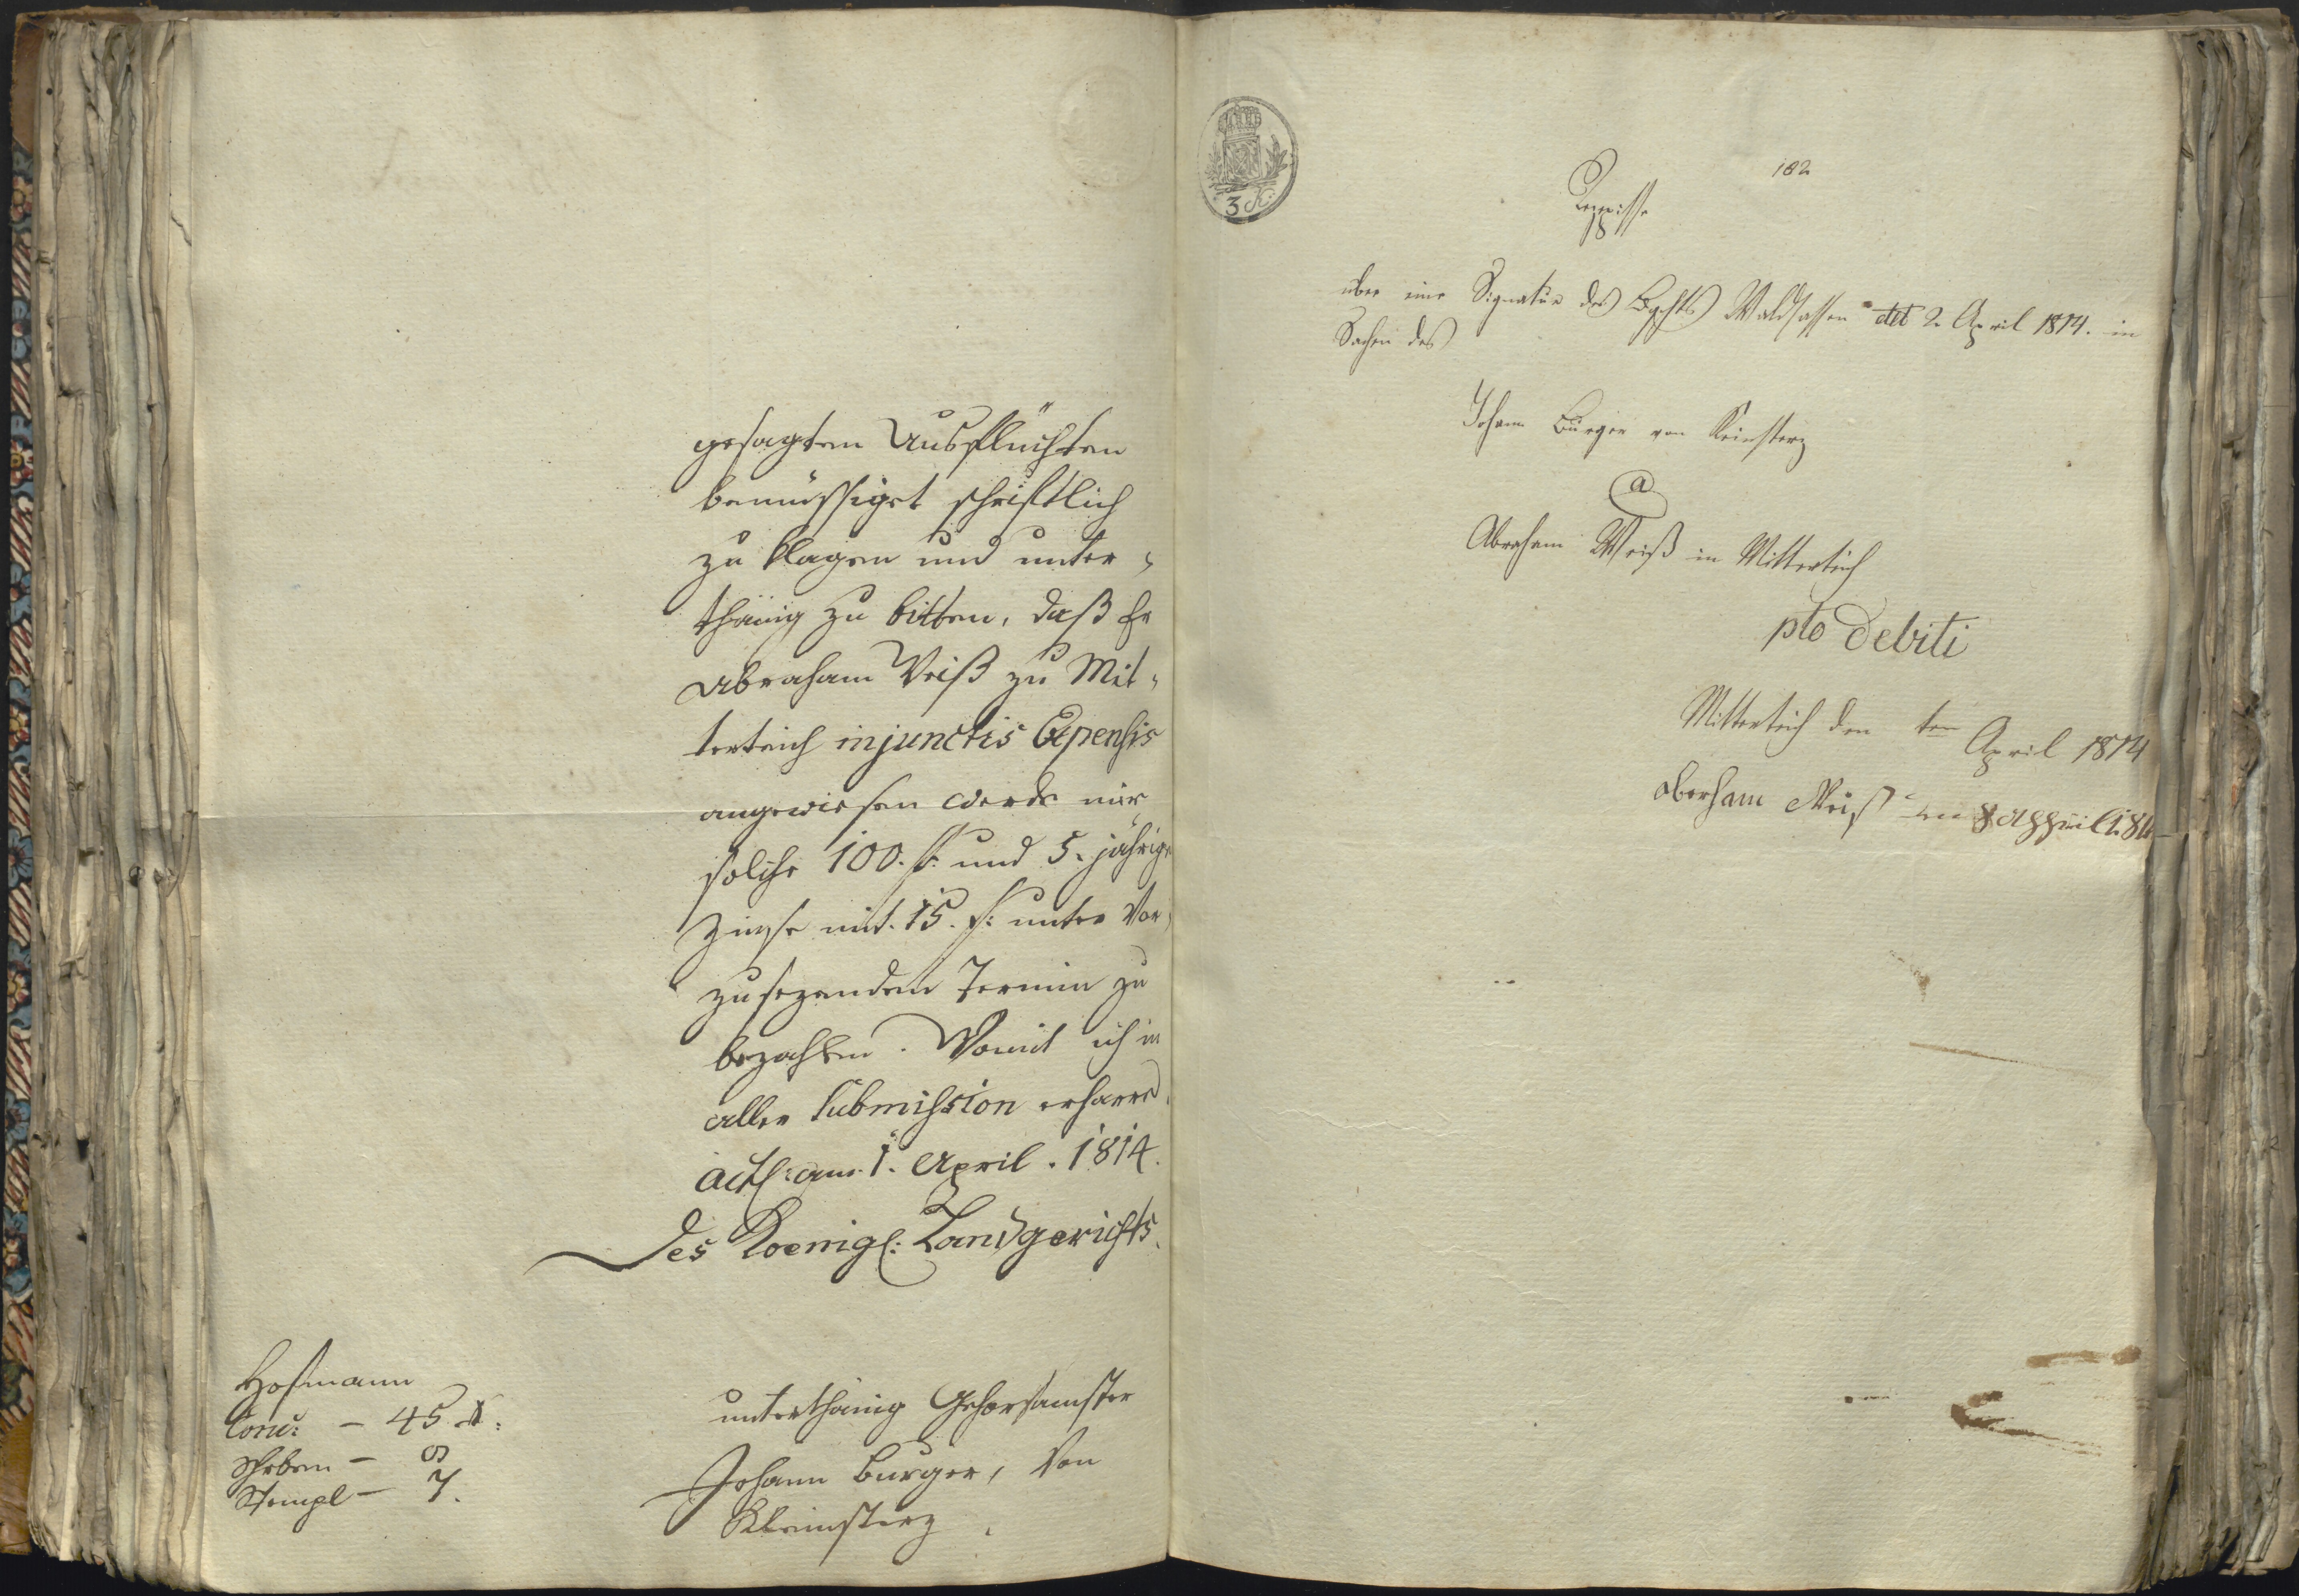 gesagten Ausflüchten
bemüssiget schriftlich
zu klagen und unter-
thänig zu bitten, daß he
Abraham Weiß zu Mit-
terteich injunctis Expensis
angewiesen werde mir
solche 100. f: und 5. jährige
Zinse mit 15. f: unter Vor-
zusezendem Termin zu
bezahlen. Womit ich in
aller Submission erharre.
Act: am 1. April. 1814.
Des Koenigl: Landgerichts.
unterthänig Gehorsamster
Johann Burger, von
Kleinsterz.
Hofmann
Conc: - 45 x:
Schreben - 9
Stempl - 7.
3 K:
182
Reppisse
über eine Signatur des Ldgchts Waldsassen ddt 2. April 1814. in
Sachen des
Johann Burger von Kleinsterz
a
Abraham Weiß in Mitterteich
pto Debiti
Mitterteich den ten April 1814
Aberham Weiß den 8 Appril 181